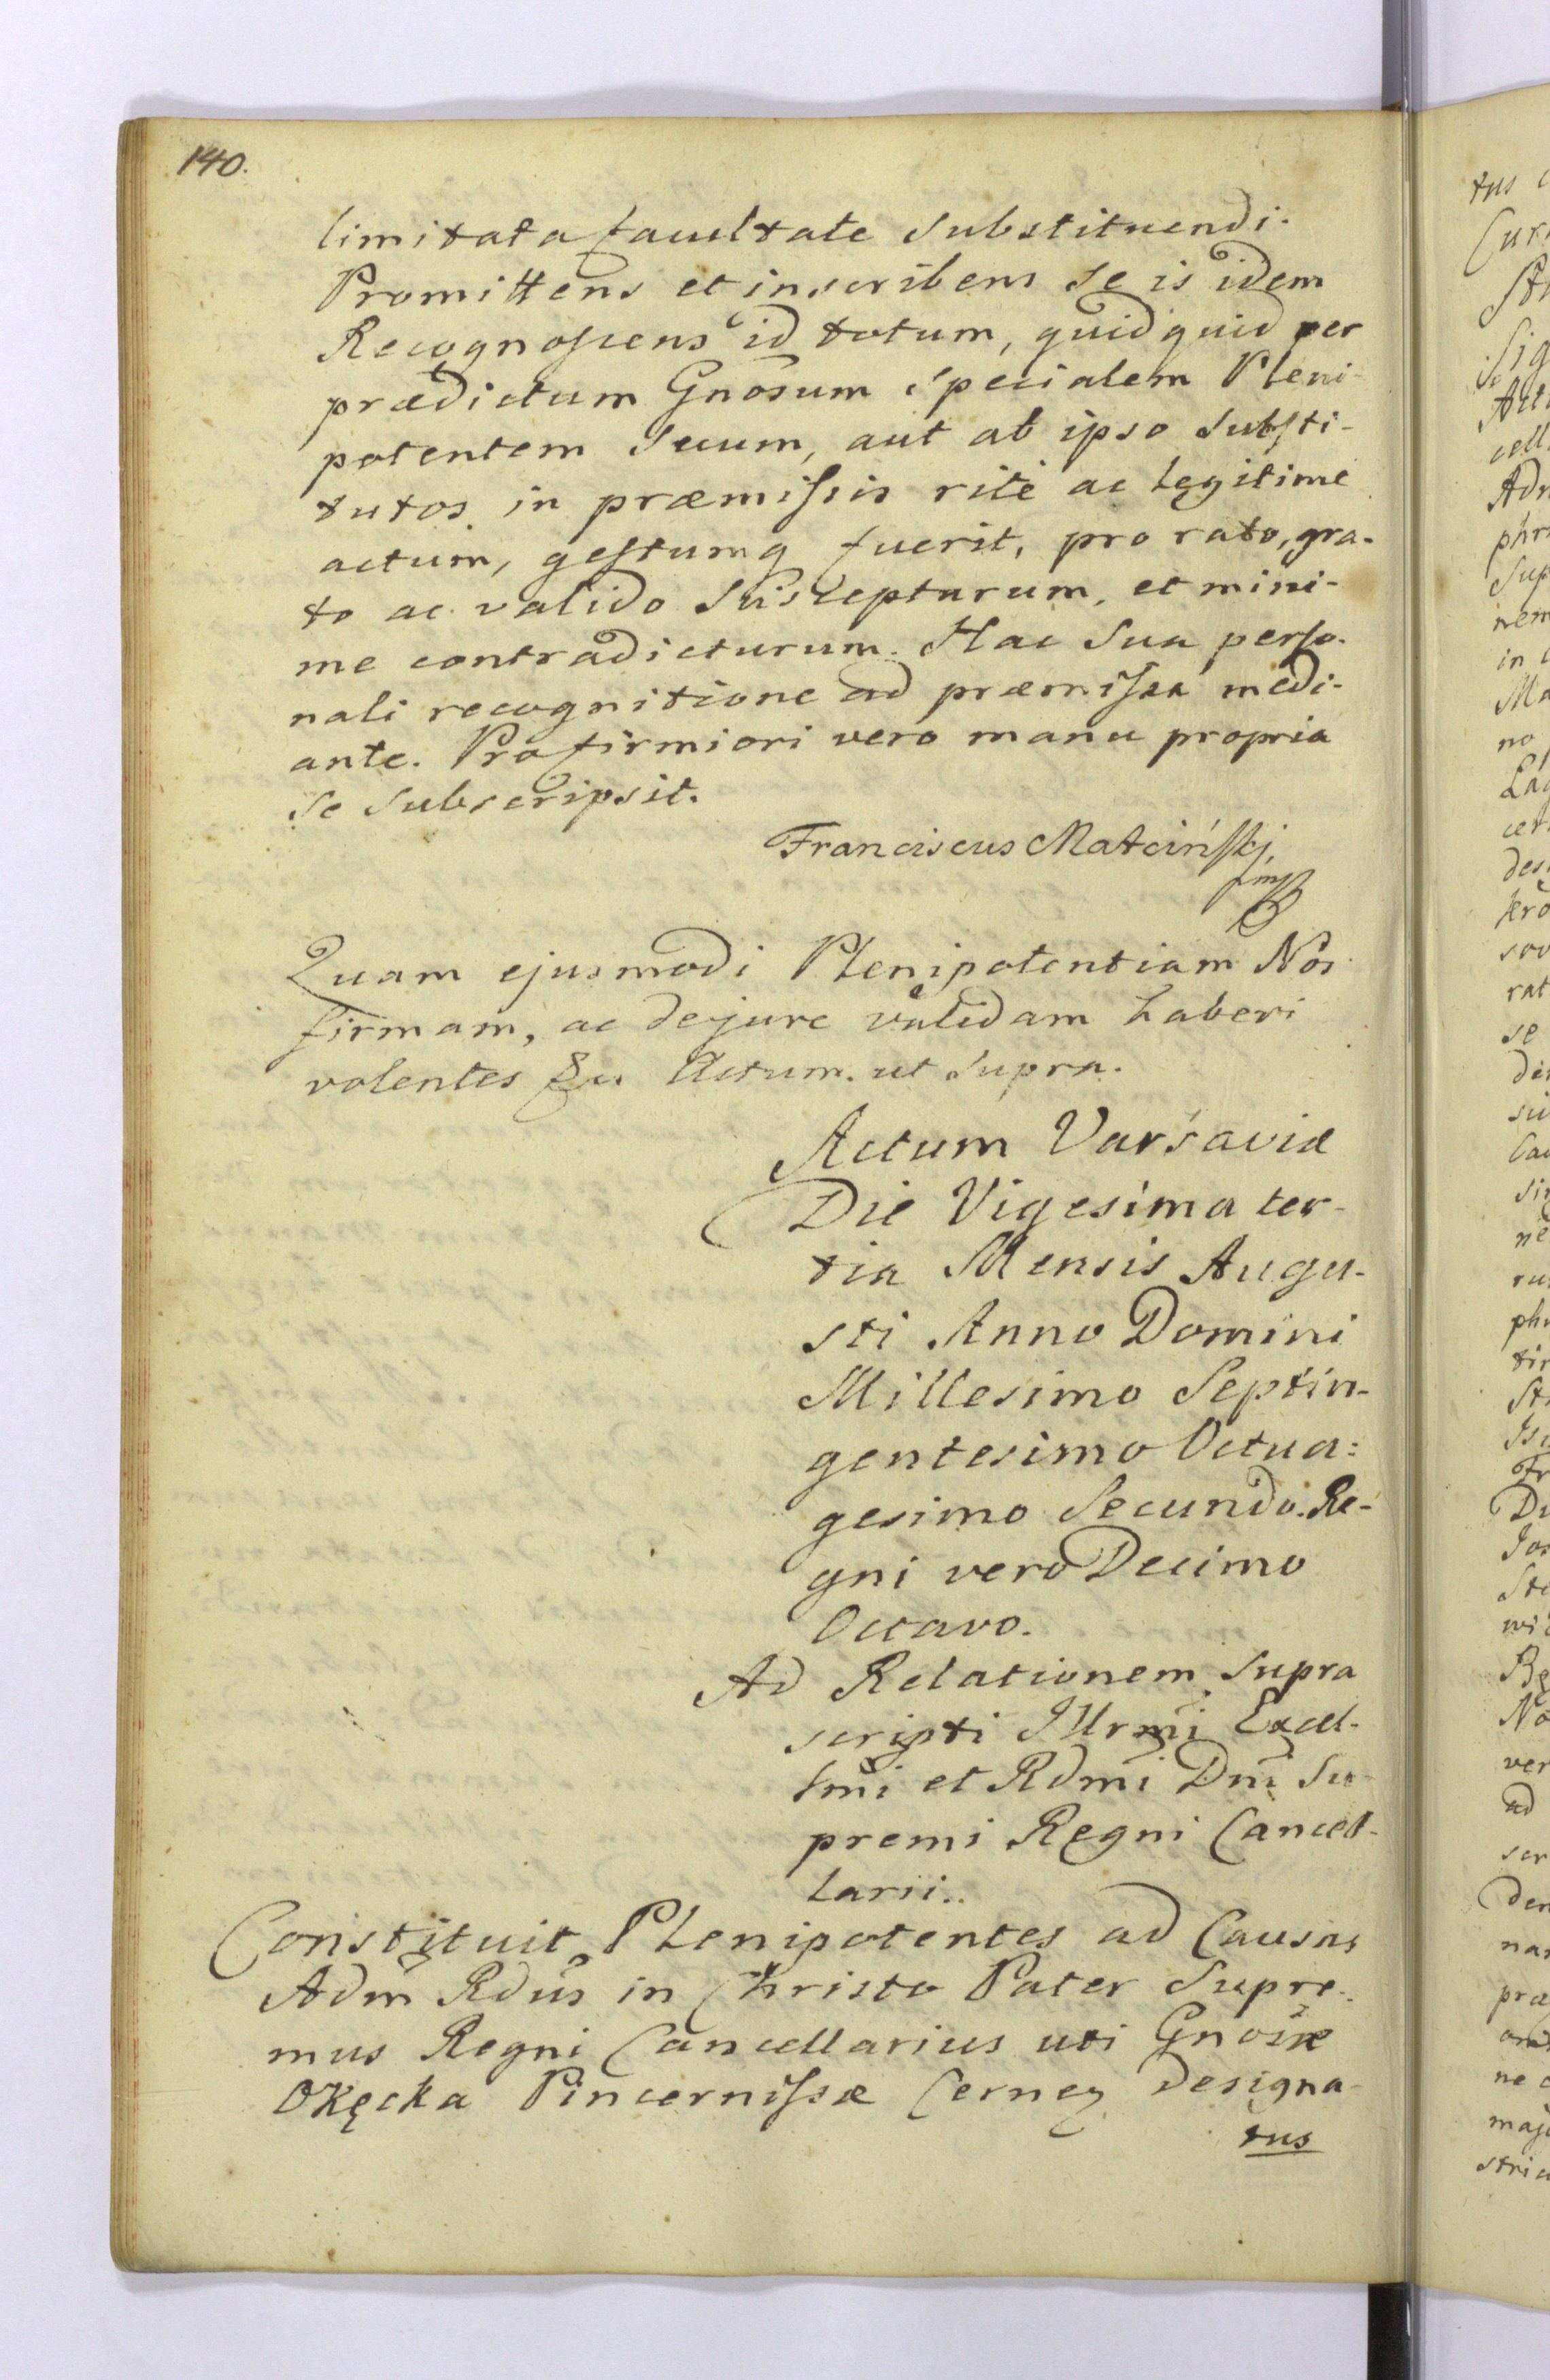 140.
limitata facultate substituendi.
Promittens et inscribens se is idem
Recognoscens id totum, quidquid per
prædictum Gnõsum specialem Pleni-
potentem suum, aut ab ipso substi-
tutos in præmissis ritè ac legitime
actum, gestumq fuerit, pro rato, gra-
to ac valido suscepturum, et mini-
me contradicturum. Hac sua perso-
nali recognitione ad præmissa medi-
ante. Pro firmiori vero manu propria
se subscripsit.
Franciscus Matcińskj
Quam ejusmodi Plenipotentiam Nos
firmam, ac de jure validam haberi
volentes Actum. ut supra.
Actum Varsaviæ
Die Vigesima ter-
tia Mensis Augu-
sti Anno Domini
Millesimo Septin-
gentesimo Octua:
gesimo Secundo. Re-
gni vero Decimo
Octavo.
Ad Relationem supra
scripti Illrmi Excel-
lmi et Rdmi Dni Su-
premi Regni Cancel-
larii..
Constituit Plenipotentes ad Causas
Adm Rdus in Christo Pater Supre-
mus Regni Cancellarius uti Gnosæ
Okęcka Pincernissæ Cernen Designa-
tus